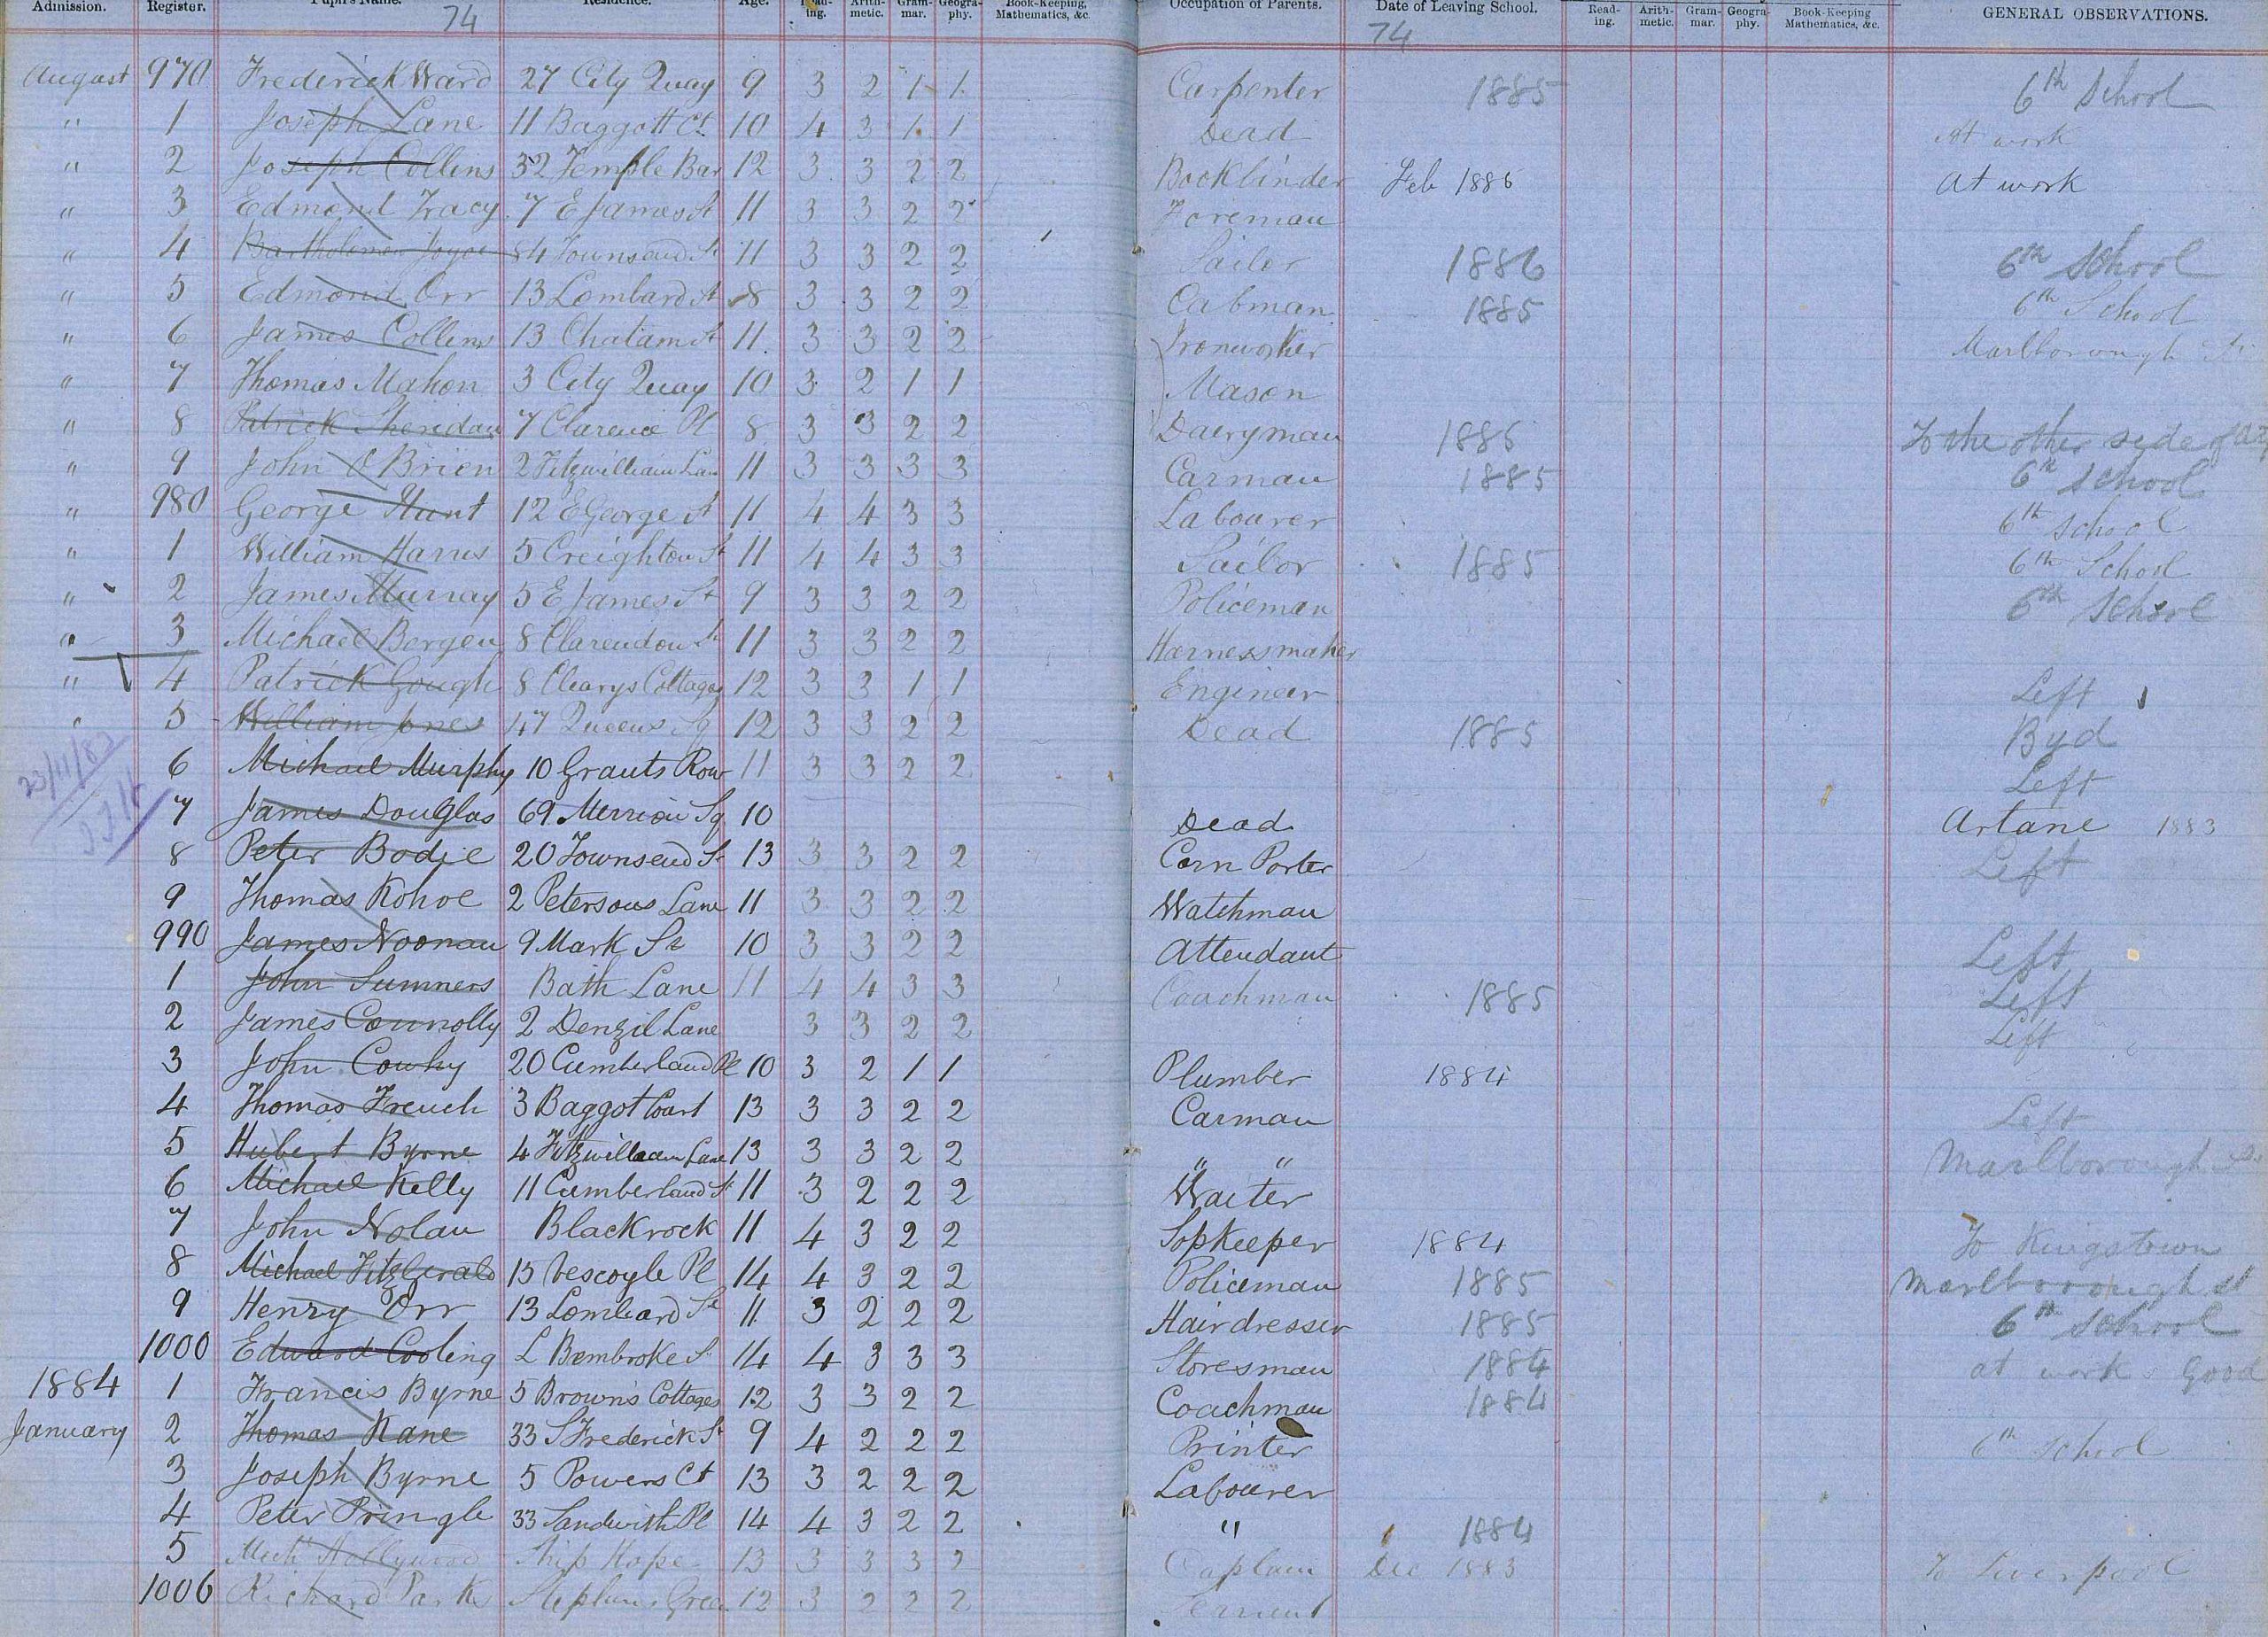 Admission. Register. Pupil's Name. Residence. Age. Read-ing. Arith-metic. Gram-mar. Geogra-phy. Book-Keeping, Mathematics, &c. Occupation of Parents. Date of Leaving School. Read-ing. Arith-metic. Gram-mar. Geogra-phy. Book-Keeping Mathematics, &c. GENERAL OBSERVATIONS.
74 74
August 970 Frederick Ward 27 City Quay 9 3 2 1 1 Carpenter 1885 6th School
" 1 Joseph Lane 11 Baggott Ct 10 4 3 1 1 Dead At work
" 2 Joseph Collens 32 Temple Bar 12 3 3 2 2 Bookbinder Feb 1886 At work
" 3 Edmond Tracy 7 E James St 11 3 3 2 2 Foreman
" 4 Bartholomew Joyce 84 Townsend St 11 3 3 2 2 Sailor 1886 6th School
" 5 Edmond Orr 13 Lombard St 8 3 3 2 2 Cabman 1885 6th School
" 6 James Collens 13 Chatam St 11 3 3 2 2 Ironworker Marlborough St
" 7 Thomas Mahon 3 City Quay 10 3 2 1 1 Mason
" 8 Patrick Sheridan 7 Clarence Pl 8 3 3 2 2 Daeryman 1886 To the other syde of
" 9 John O'Brien 2 Fitzwilliam Lan 11 3 3 3 3 Carman 1885 6th School
" 980 George Hunt 12 E George St 11 4 4 3 3 Labourer 6th School
" 1 William Harris 5 Creighton St 11 4 4 3 3 Sailor 1885 6th School
" 2 James Murray 5 E James St 9 3 3 2 2 Policeman 6th School
" 3 Michael Bergen 8 Clarendon St 11 3 3 2 2 Harnessmaker
" 4 Patrick Gough 8 Clearys Cottages 12 3 3 1 1 Engineer Left
" 5 William Jones 47 Queens Sq 12 3 3 2 2 Dead 1885 Byd
23/11/83 6 Michael Murphy 10 Grants Row 11 3 3 2 2 Left
7 James Douglas 69 Merrion Sq 10 Dead Artane 1883
8 Peter Bodie 20 Townsend St 13 3 3 2 2 Corn Porter Left
9 Thomas Kohoe 2 Petersons Lane 11 3 3 2 2 Watchman
990 James Noonan 9 Mark St 10 3 3 2 2 Attendant Left
1 John Sumners Bath Lane 11 4 4 3 3 Coachman 1885 Left
2 James Connolly 2 Denzil Lane 3 3 2 2 Left
3 John Cowhy 20 Cumberland Pl 10 3 2 1 1 Plumber 1884
4 Thomas French 3 Baggot Court 13 3 3 2 2 Carman Left
5 Hubert Byrne 4 Fitzwilliam Lane 13 3 3 2 2 " " Marlborough St
6 Michael Kelly 11 Cumberland St 11 3 2 2 2 Waiter
7 John Nolan Blackrock 11 4 3 2 2 Sopkeeper 1884 To Kingstown
8 Michael FitzGerald 15 Vescoyle Pl 14 4 3 2 2 Policeman 1885 Marlborough St
9 Henry Orr 13 Lombard St 11 3 2 2 2 Hairdresser 1885 6th School
1000 Edward Cooling L Bembroke St 14 4 3 3 3 Storesman 1884 at work Good
1884 1 Francis Byrne 5 Browns Cottages 12 3 3 2 2 Coachman 1884
January 2 Thomas Kane 33 S Frederick St 9 4 2 2 2 Printer 6th School
3 Joseph Byrne 5 Powers Ct 13 3 2 2 2 Labourer
4 Peter Pringle 33 Sandwith Pl 14 4 3 2 2 " 1884
5 Mich Hollywood Ship Hope 13 3 3 3 2 Captain Dec 1883 To Liverpool
1006 Richard Park Stephens Green 12 3 2 2 2